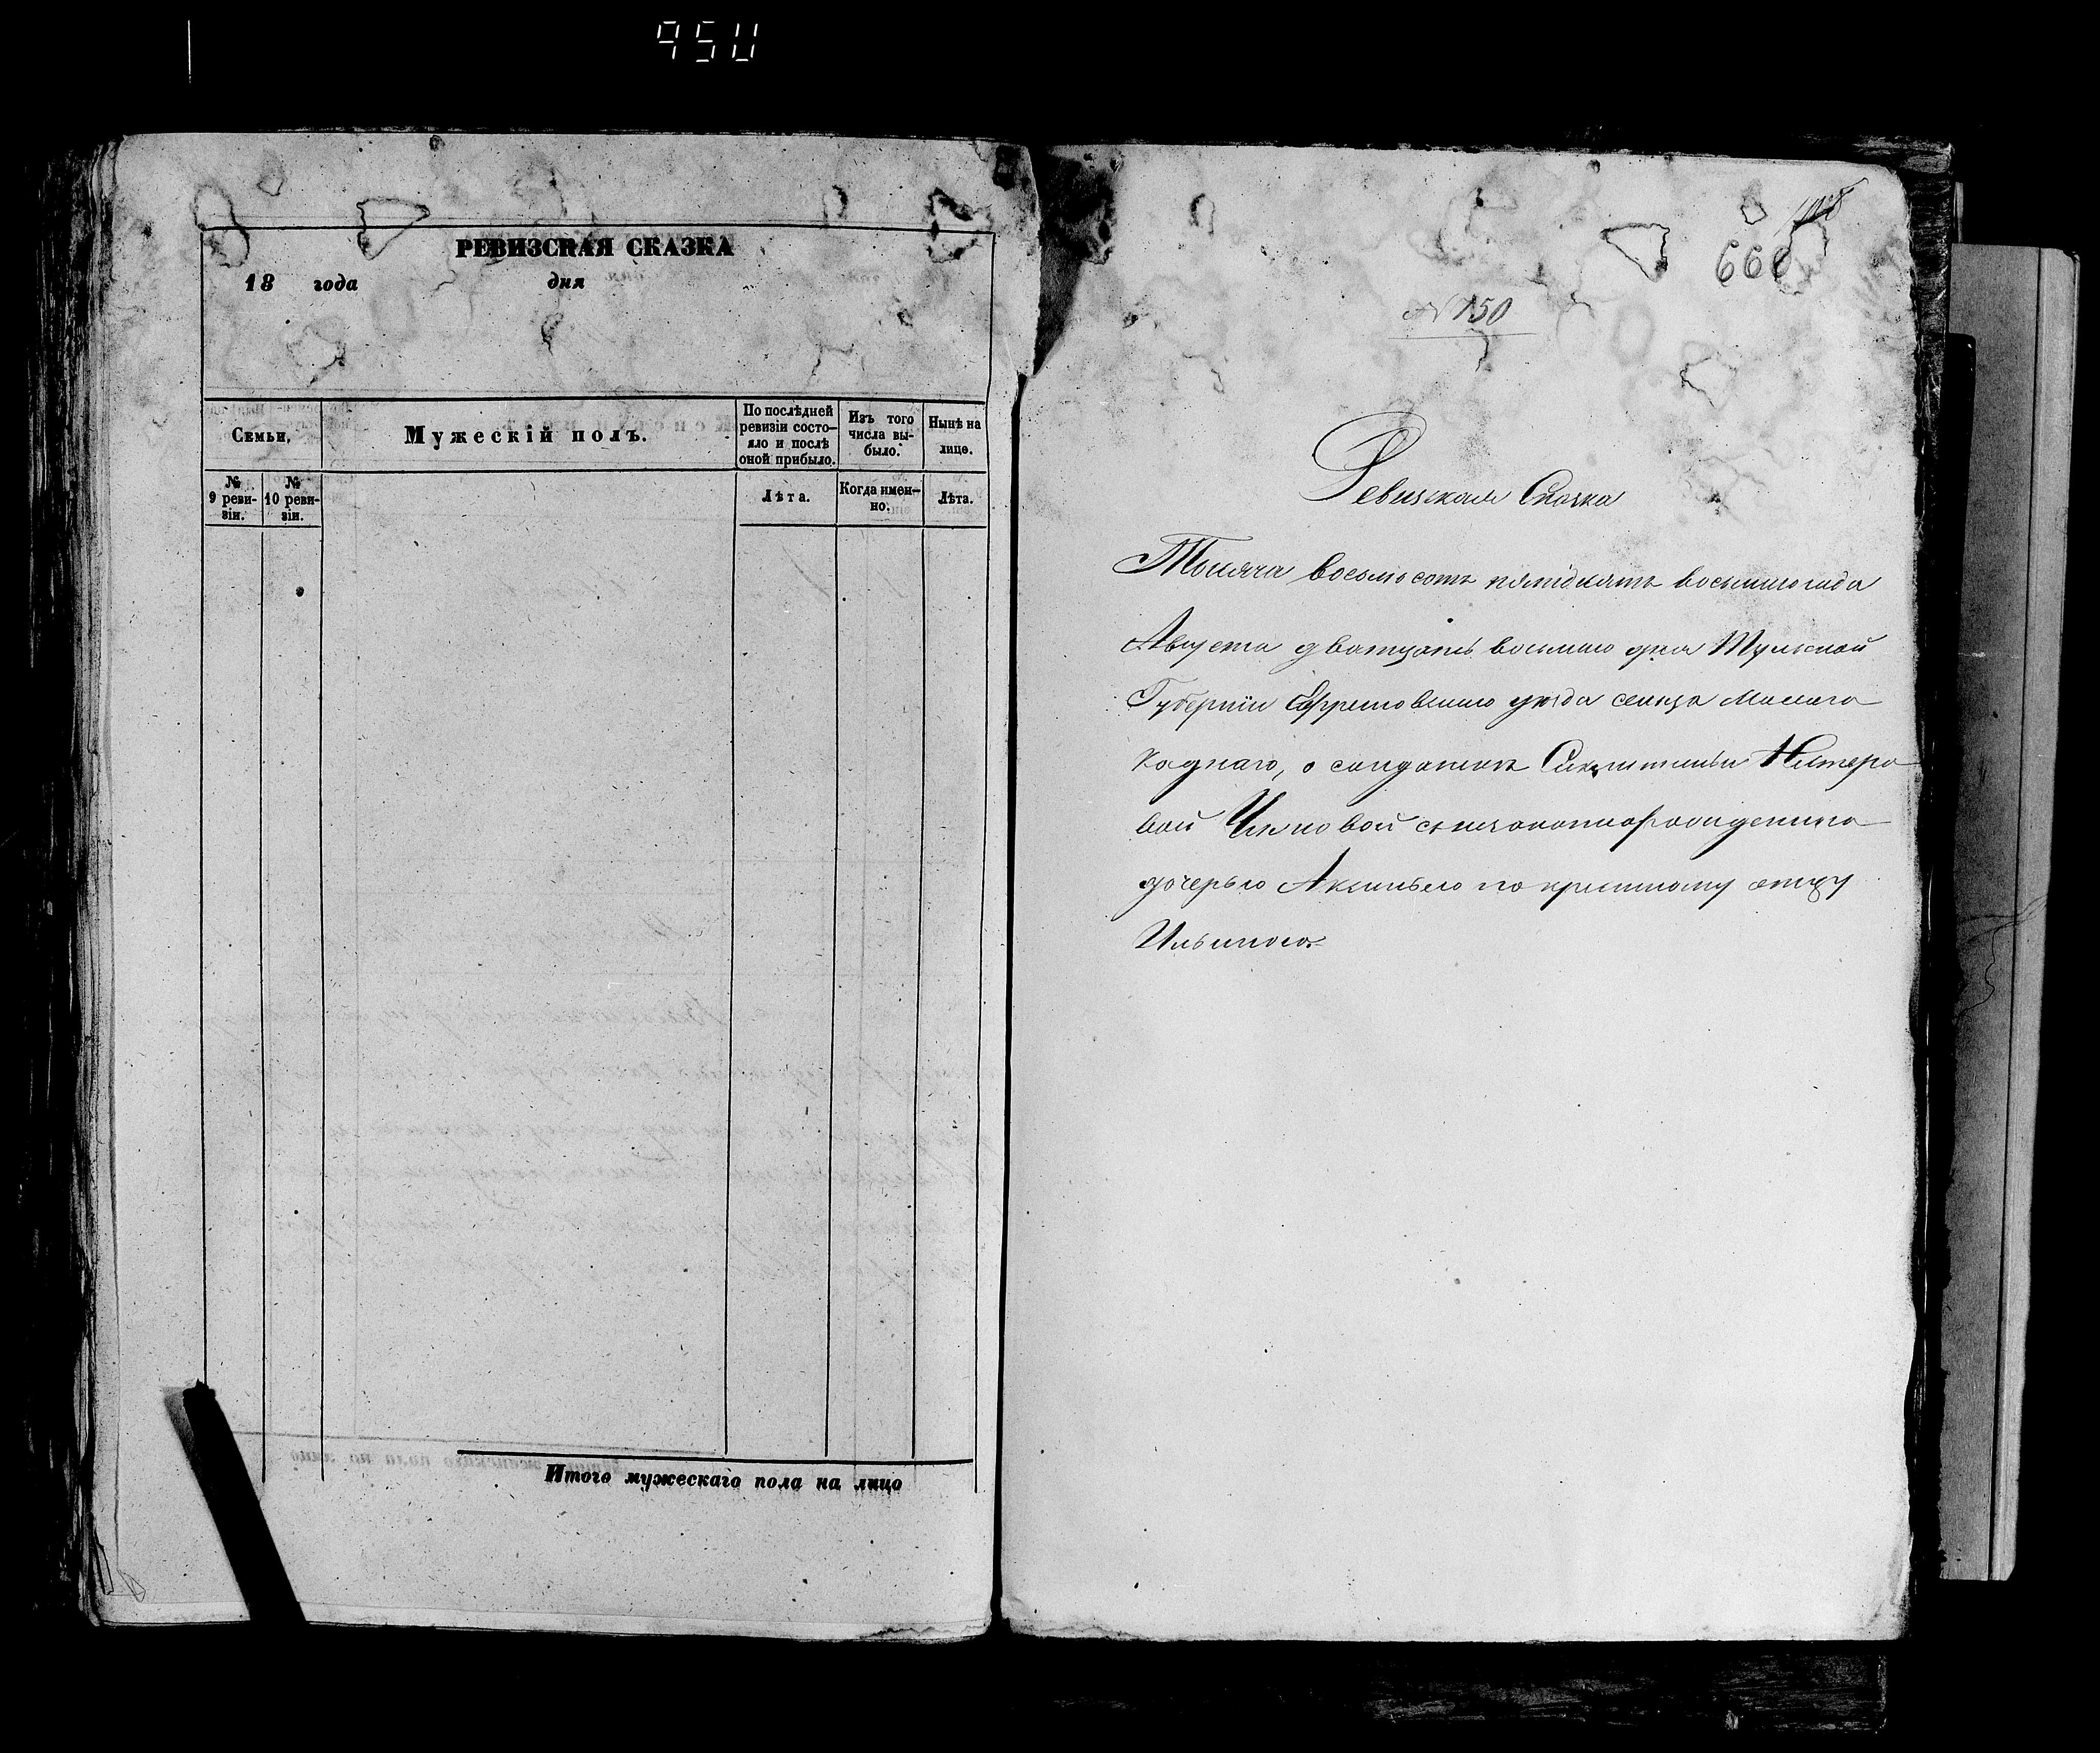 950
РЕВИЗСКАЯ СКАЗКА
18 года дня
Семьи,
Мужескій полъ.
По послѣдней ревизіи состо-
яло и послѣ
оной прибыло.
Изъ того
числа вы-
было.
Нынѣ на
лице.
№
9 реви-
зіи.
№
10 реви-
зіи.
Лѣта.
Когда имен-
но.
Лѣта.
Итого мужескаго пола на лицо
660
№ 150
Ревизская Сказка
Тысяча восемьсотъ пятдесятъ восьмаго года
Августа дватцать восьмаго дня Тульской
Губерніи Ефремовскаго уѣзда сельца Малаго
Каднаго, о солдаткѣ
вой съ незаконнорожденною
дочерью Аксиньею по крестному отцу
Ильиною